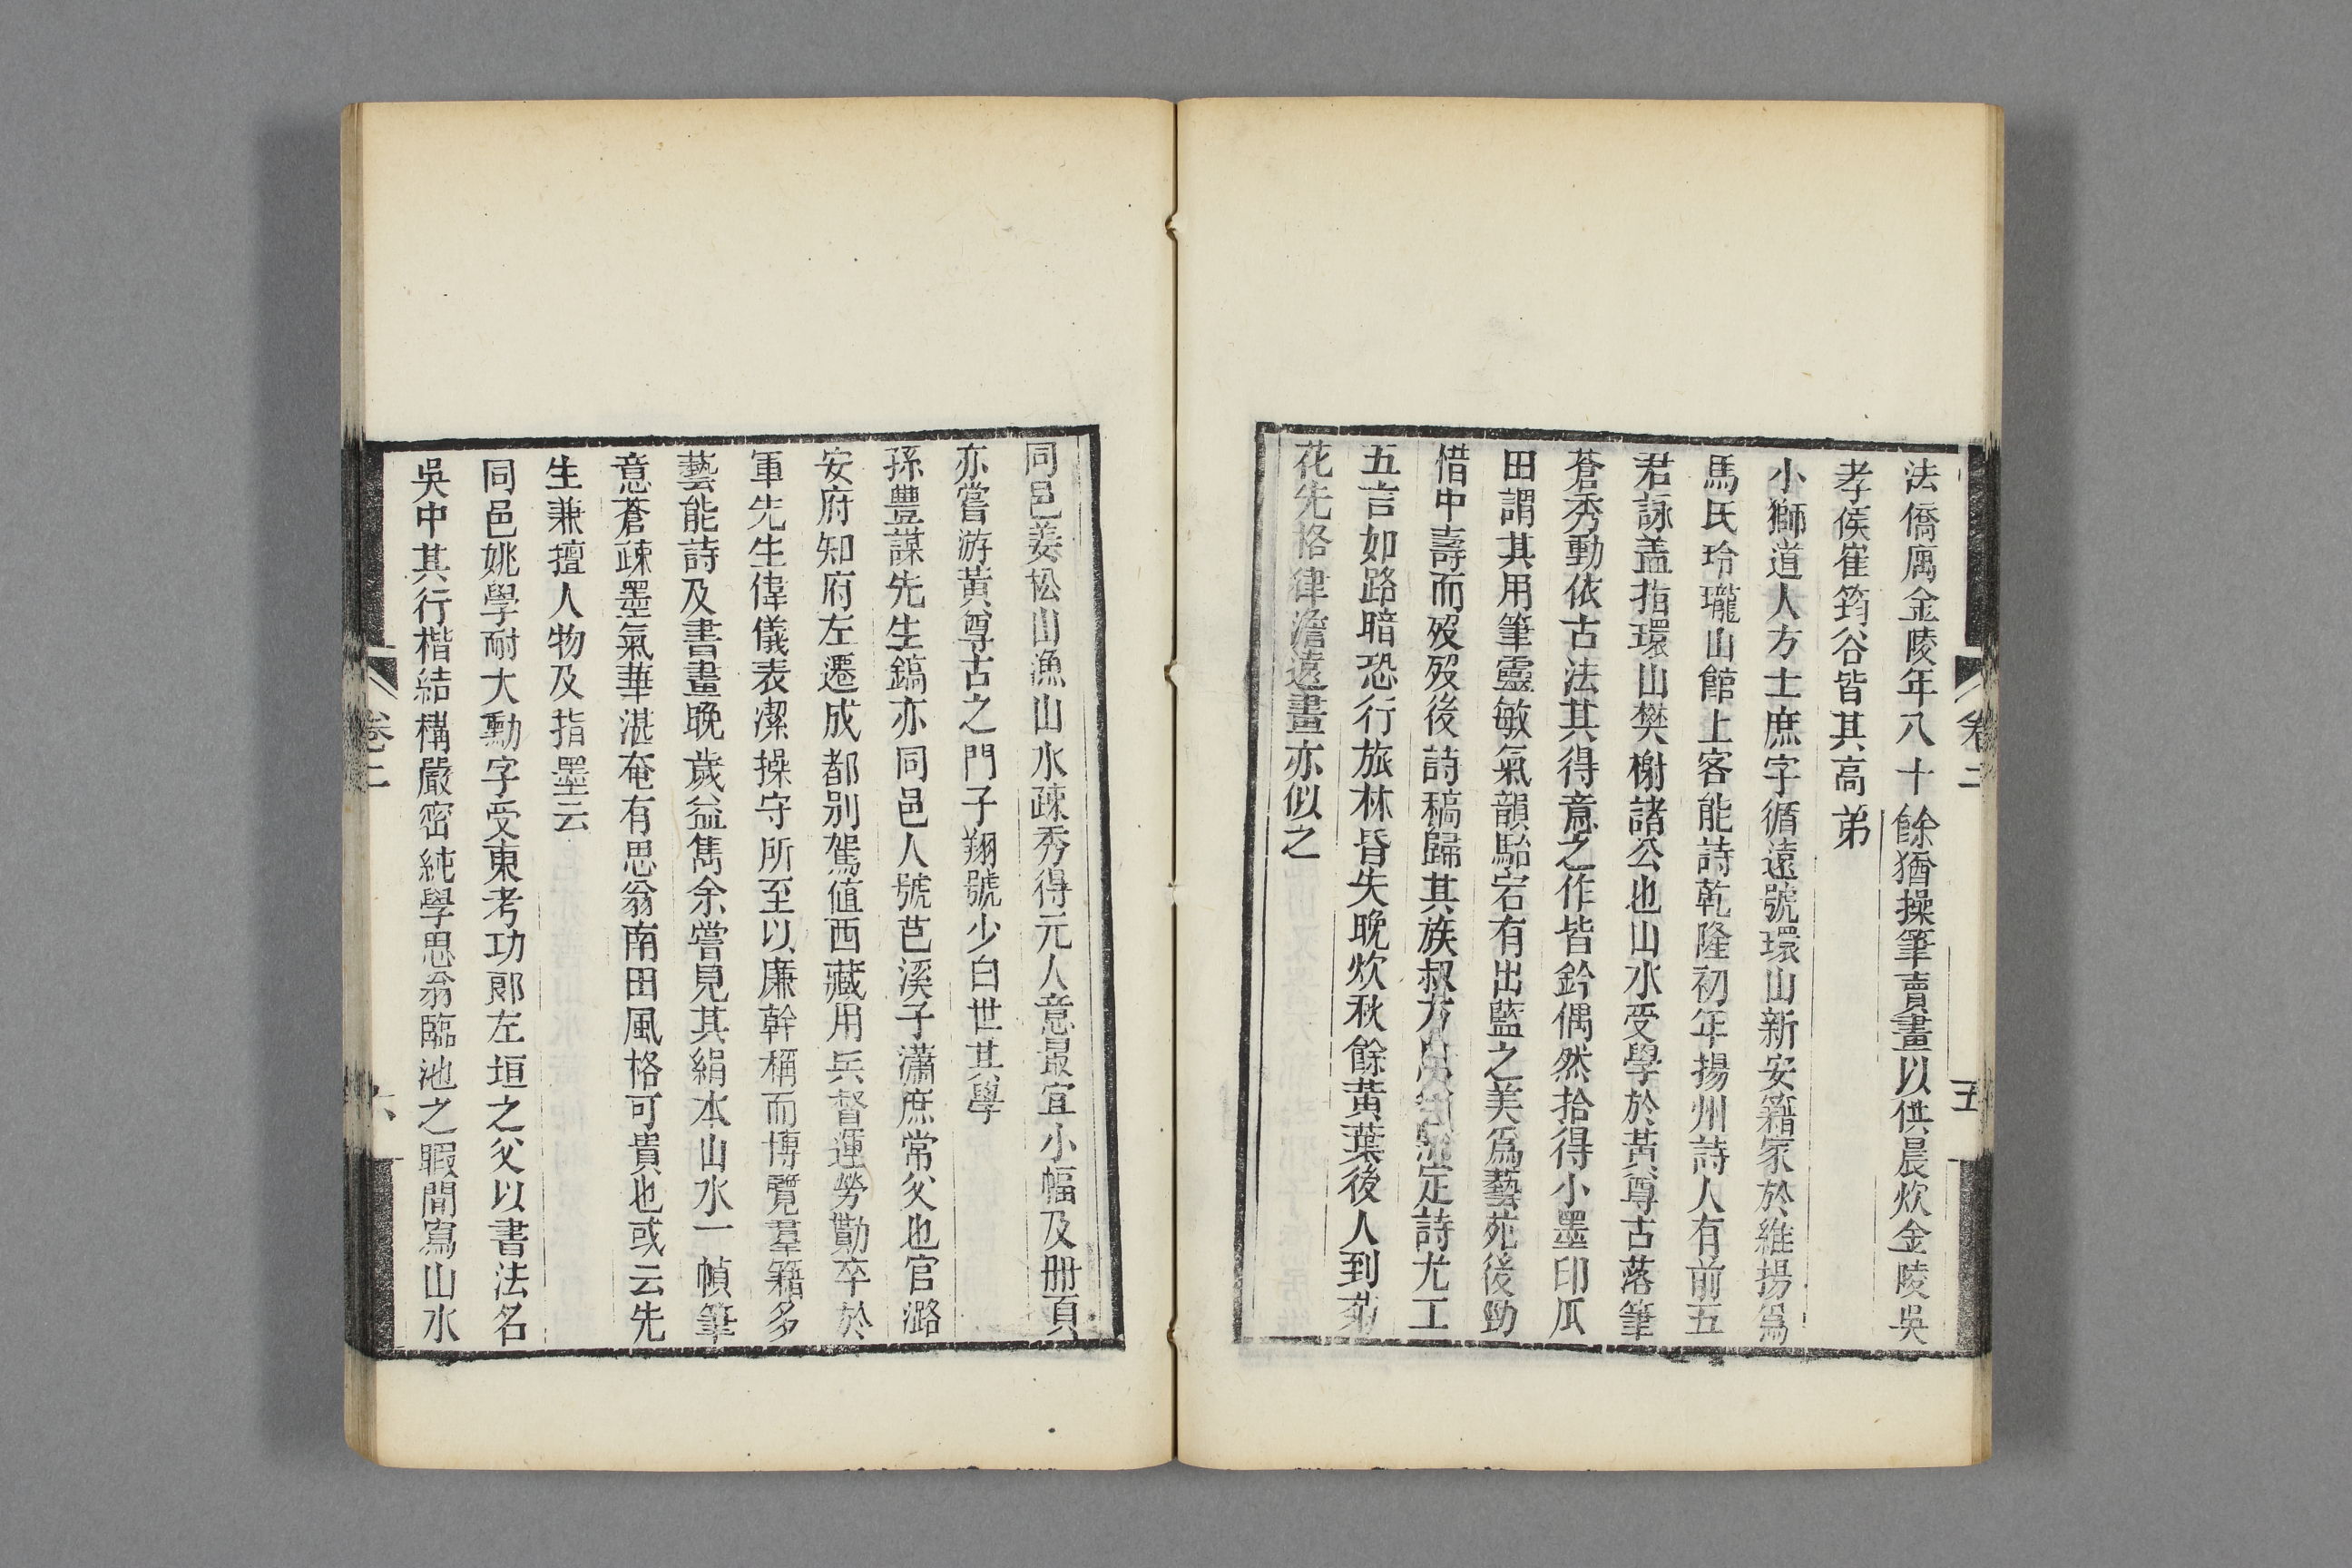 法僑寓金陵年八十餘猶操筆賣畫以供晨炊金陵吳
孝侯崔筠谷皆其高弟
小獅道人方士庶字循遠號環山新安籍家於維揚爲
馬氏玲瓏山館上客能詩乾隆初年揚州詩人有前五
君詠盖指環山樊榭諸公也山水受學於黃尊古落筆
蒼秀動依古法其得意之作皆鈐偶然拾得小墨印瓜
田謂其用筆靈敏氣韻駘宕有出藍之美爲藝苑後勁
惜中壽而歿歿後詩稿歸其族叔方定詩尤工
五言如路暗恐行旅林昏失晚炊秋餘黃葉後人到菊
花先格律澹遠畫亦似之
卷二
五
同邑姜松山漁山水疎秀得元人意最宜小幅及冊頁
亦嘗游黃尊古之門子翔號少白世其學
孫豐謀先生鎬亦同邑人號芭溪子瀟庶常父也官潞
安府知府左遷成都別駕值西藏用兵督運勞勩卒於
軍先生偉儀表潔操守所至以廉幹稱而博覽羣籍多
藝能詩及書畫晚歲益雋余嘗見其絹本山水一幀筆
意蒼疎墨氣華湛奄有思翁南田風格可貴也或云先
生兼擅人物及指墨云
同邑姚學耐大勳字受東考功郎左垣之父以書法名
吳中其行楷結構嚴密純學思翁臨池之暇間寫山水
卷二
六